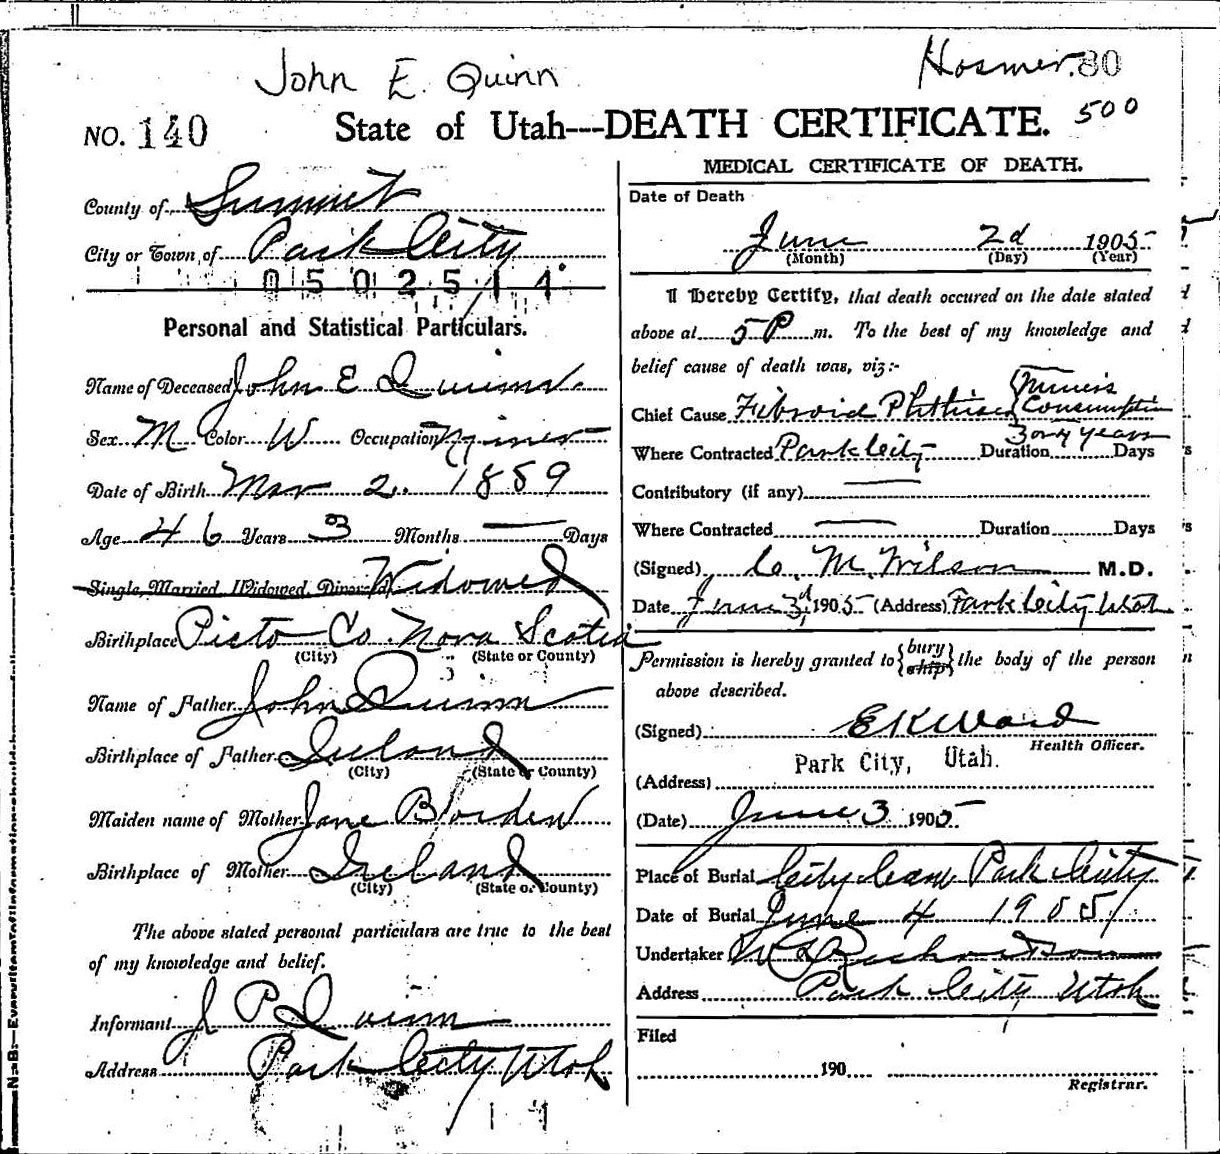 John E. Quinn
Hosmer. 80
500
NO. 140
State of Utah---DEATH CERTIFICATE.
County of Summit
City or Town of Park City
0502514
Personal and Statistical Particulars.
Name of Deceased John E Quinn
Sex M Color W Occupation Miner
Date of Birth Mar 2. 1889
Age 46 Years 3 Months — Days
Single, Married, Widowed, Divorced Widowed
Birthplace Picto Co. Nova Scotia
(City) (State or County)
Name of Father John Quinn
Birthplace of Father Ireland
(City) (State or County)
Maiden name of Mother Jane Borden
Birthplace of Mother Ireland
(City) (State or County)
The above stated personal particulars are true to the best
of my knowledge and belief.
Informant J P Quinn
Address Park City Utah
MEDICAL CERTIFICATE OF DEATH.
Date of Death
June 2d 1905
(Month) (Day) (Year)
I Hereby Certify, that death occured on the date stated
above at 5 P m. To the best of my knowledge and
belief cause of death was, viz:-
Miners
Chief Cause Fibroid Phthisis Consumption
3 or 4 years
Where Contracted Park City Duration Days
Contributory (if any) —
Where Contracted — Duration Days
(Signed) C. M. Wilson M.D.
Date June 3d, 1905 (Address) Park City Utah
Permission is hereby granted to {bury ship} the body of the person
above described.
(Signed) E K Ward
Health Officer.
Park City, Utah.
(Address)
(Date) June 3 1905
Place of Burial City Cem Park City
Date of Burial June 4 1905
Undertaker W Richardson
Address Park City Utah
Filed
190
Registrar.
N. B.—Every item of information should